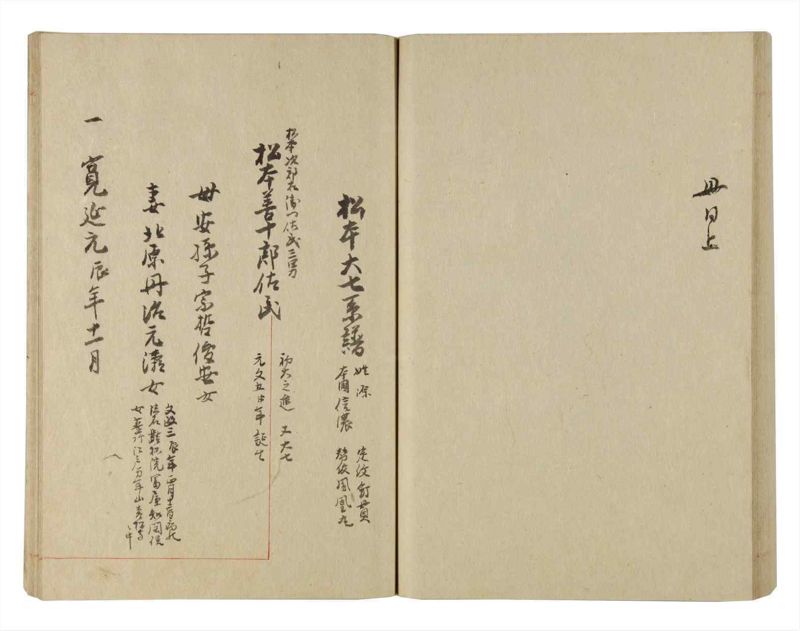 母同上
松本大七系譜
姓源
本國信濃
定紋釘貫
替紋鳳凰丸
松本次郎右衛門佐武三男
松本善十郎佐武
初大之進 又大七
元文五申年誕生
母安孫子宗哲俊安女
妻北原丹治元清女
文政三辰年
一寛延元辰年十一月